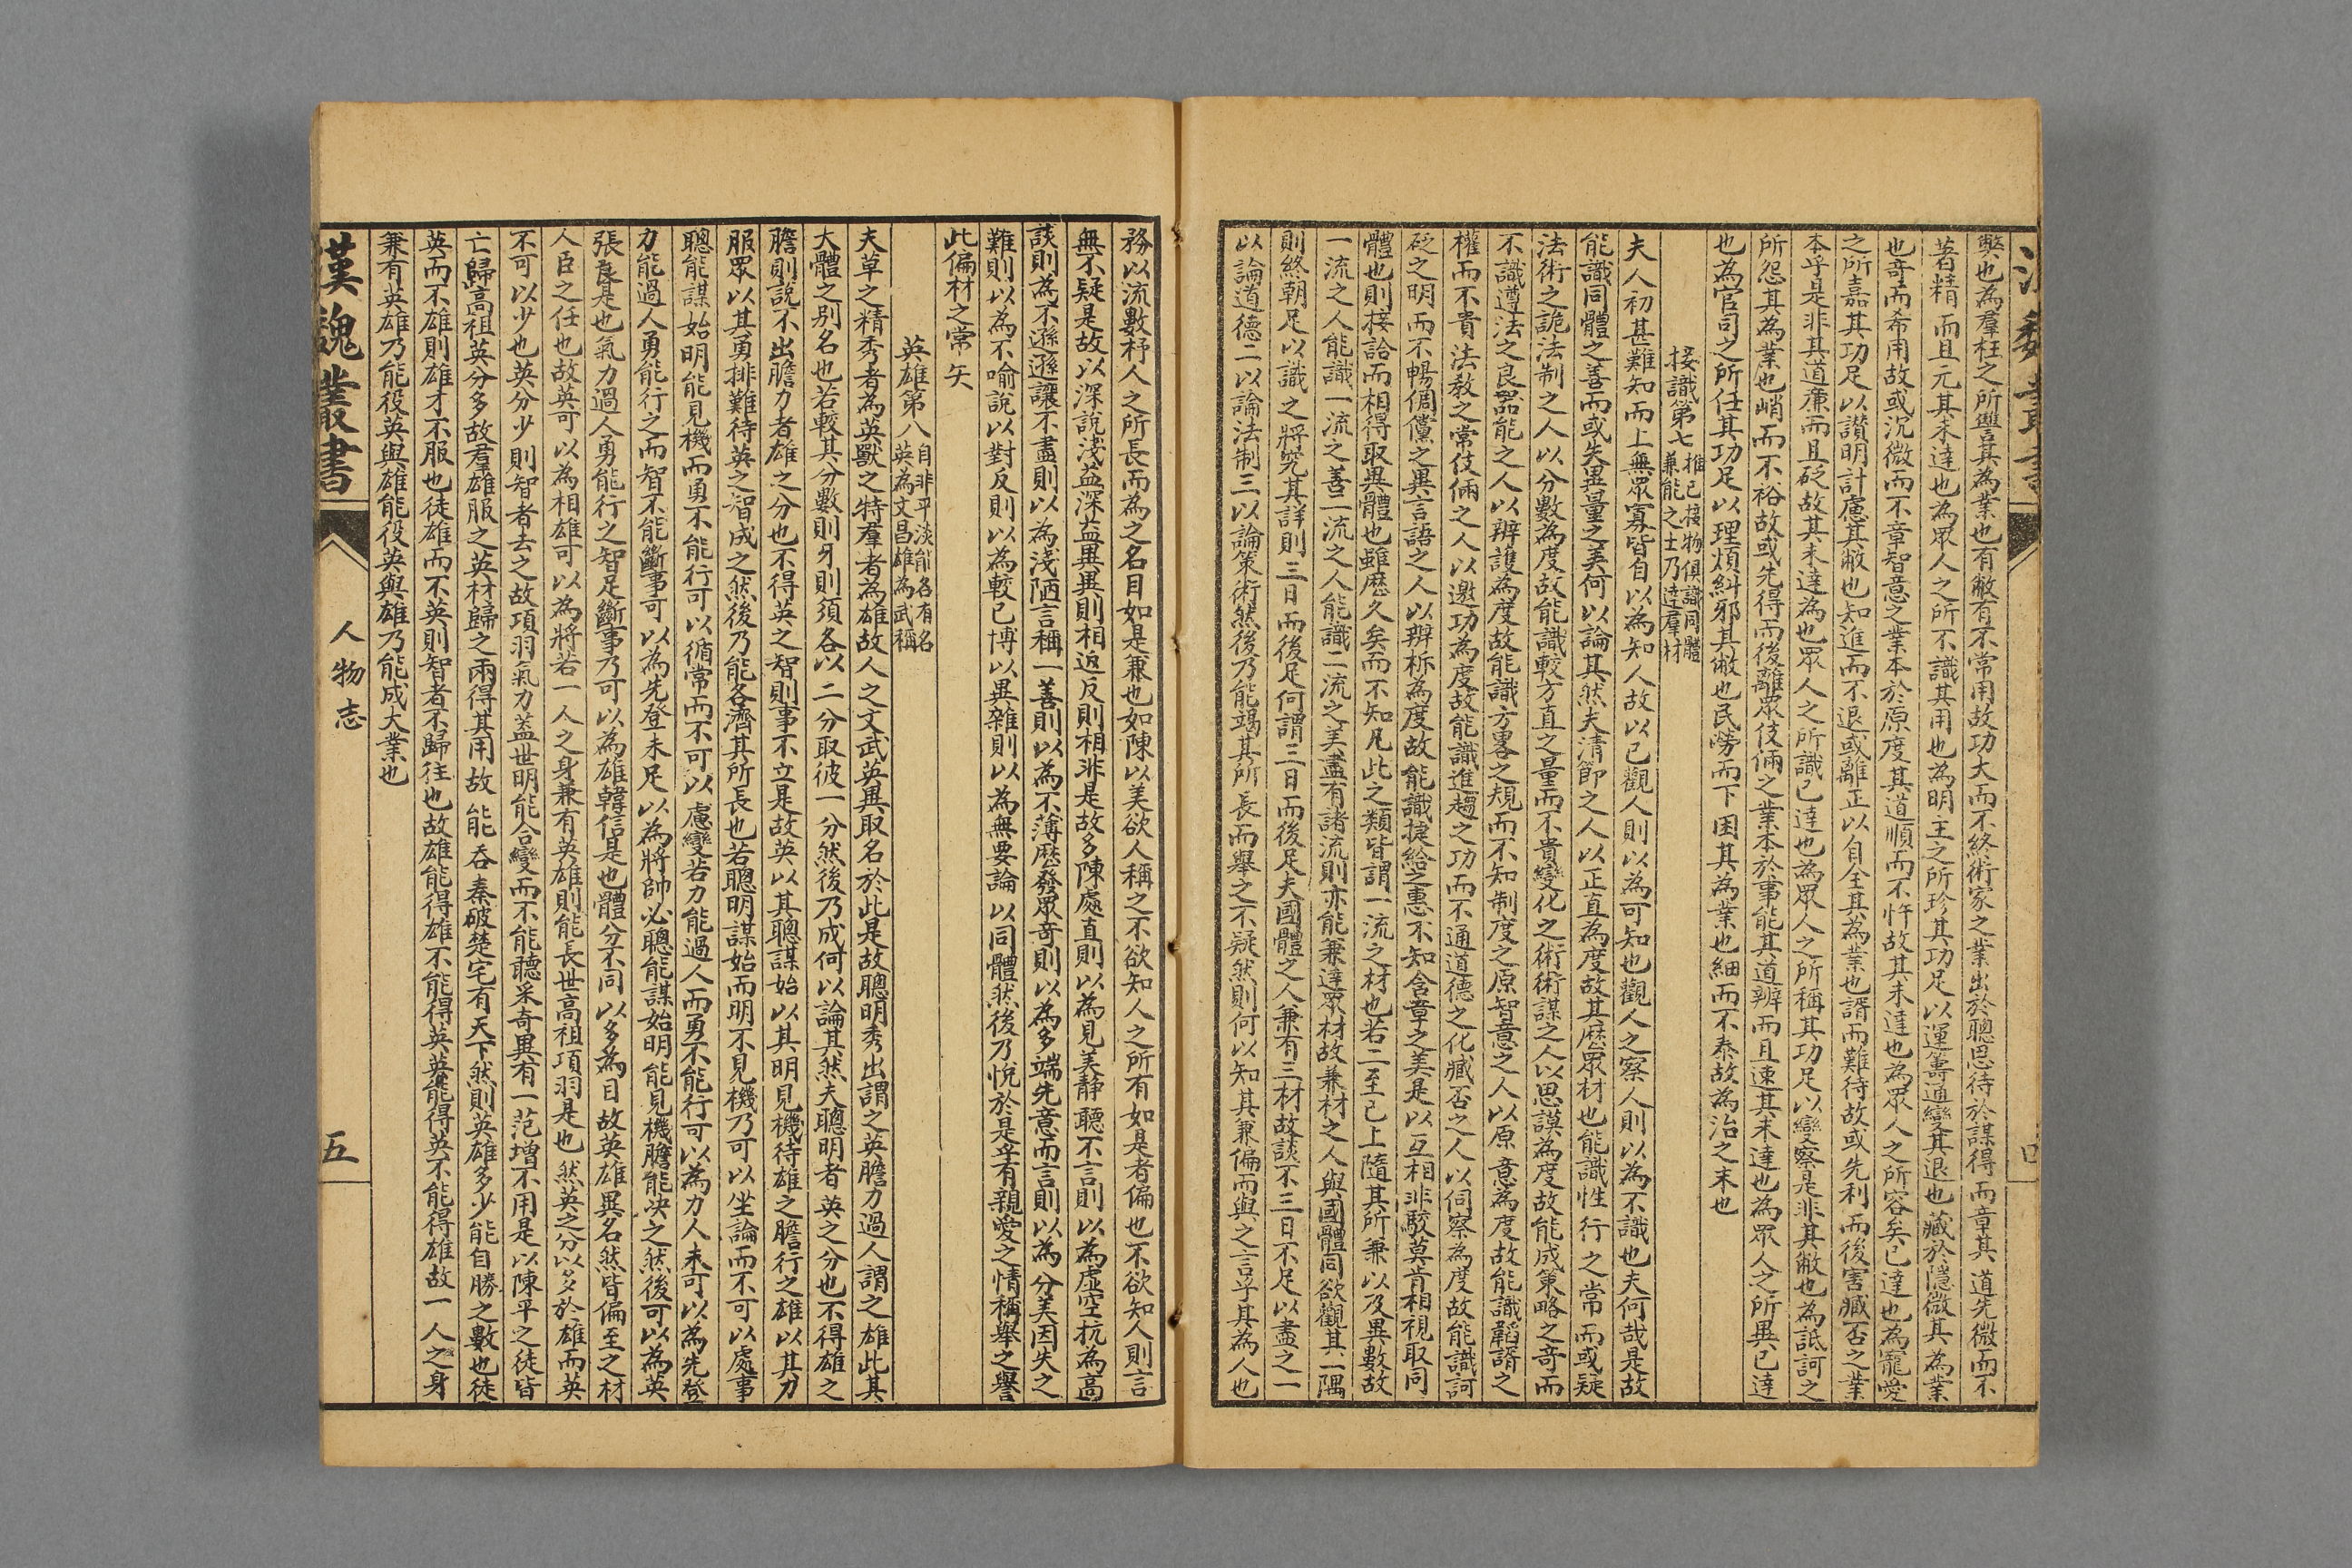 弊也為羣枉之所讐其為業也有敝有不常用故功大而不終術家之業出於聰思待於謀得而章其道先微而不
著精而且元其未達也為眾人之所不識其用也為明主之所珍其功足以運籌通變其退也藏於隱微其為業
也奇而希用故或沉微而不章智意之業本於原度其道順而不忤故其未達也為眾人之所容矣已達也為寵愛
之所嘉其功足以讚明計慮其敝也知進而不退或離正以自全其為業也諝而難待故或先利而後害臧否之業
本乎是非其道廉而且砭故其未達為也眾人之所識已達也為眾人之所稱其功足以變察是非其敝也為詆訶之
所怨其為業也峭而不裕故或先得而後離眾伎倆之業本於事能其道辨而且速其未達也為眾人之所異已達
也為官司之所任其功足以理煩糾邪其敝也民勞而下困其為業也細而不泰故為治之末也
接識第七 推己接物俱識同體 兼能之士乃達羣材
夫人初甚難知而上無眾寡皆自以為知人故以己觀人則以為可知也觀人之察人則以為不識也夫何哉是故
能識同體之善而或失異量之美何以論其然夫清節之人以正直為度故其歷眾材也能識性行之常而或疑
法術之詭法制之人以分數為度故能識較方直之量而不貴變化之術術謀之人以思謨為度故能成策略之奇而
不識遵法之良器能之人以辨護為度故能識方畧之規而不知制度之原智意之人以原意為度故能識韜諝之
權而不貴法教之常伎倆之人以邀功為度故能識進趨之功而不通道德之化臧否之人以伺察為度故能識訶
砭之明而不暢倜儻之異言語之人以辨析為度故能識捷給之惠不知含章之美是以互相非駁莫肯相視取同
體也則接詥而相得取異體也雖歷久矣而不知凡此之類皆謂一流之材也若二至已上隨其所兼以及異數故
一流之人能識一流之善二流之人能識二流之美盡有諸流則亦能兼達眾材故兼材之人與國體同欲觀其一隅
則終朝足以識之將究其詳則三日而後足何謂三日而後足夫國體之人兼有三材故談不三日不足以盡之一
以論道德二以論法制三以論策術然後乃能竭其所長而舉之不疑然則何以知其兼偏而與之言乎其為人也
務以流數杼人之所長而為之名目如是兼也如陳以美欲人稱之不欲知人之所有如是者偏也不欲知人則言
無不疑是故以深說淺益深益異異則相返反則相非是故多陳處直則以為見美靜聽不言則以為虛空抗為高
談則為不遜遜讓不盡則以為淺陋言稱一善則以為不薄歷發眾奇則以為多端先意而言則以為分美因失之
難則以為不喻說以對反則以為較已博以異雜則以為無要論以同體然後乃悅於是乎有親愛之情稱舉之譽
此偏材之常失
英雄第八 自非平淡能各有名 英為文昌雄為武稱
夫草之精秀者為英獸之特羣者為雄故人之文武英異取名於此是故聰明秀出謂之英膽力過人謂之雄此其
大體之別名也若較其分數則牙則須各以二分取彼一分然後乃成何以論其然夫聰明者英之分也不得雄之
膽則說不出膽力者雄之分也不得英之智則事不立是故英以其聰謀始以其明見機待雄之膽行之雄以其力
服眾以其勇排難待英之智成之然後乃能各濟其所長也若聰明謀始而明不見機乃可以坐論而不可以處事
聰能謀始明能見機而勇不能行可以循常而不可以慮變若力能過人而勇不能行可以為力人未可以為先登
力能過人勇能行之而智不能斷事可以為先登未足以為將帥必聰能謀始明能見機膽能决之然後可以為英
張良是也氣力過人勇能行之智足斷事乃可以為雄韓信是也體分不同以多為目故英雄異名然皆偏至之材
人臣之任也故英可以為相雄可以為將若一人之身兼有英雄則能長世高祖項羽是也然英之分以多於雄而英
不可以少也英分少則智者去之故項羽氣力蓋世明能合變而不能聽采奇異有一范增不用是以陳平之徒皆
亡歸高祖英分多故羣雄服之英材歸之兩得其用故能吞秦破楚宅有天下然則英雄多少能自勝之數也徒
英而不雄則雄才不服也徒雄而不英則智者不歸往也故雄能得雄不能得英英能得英不能得雄故一人之身
兼有英雄乃能役英與雄能役英與雄乃能成大業也
漢魏叢書
人物志
五